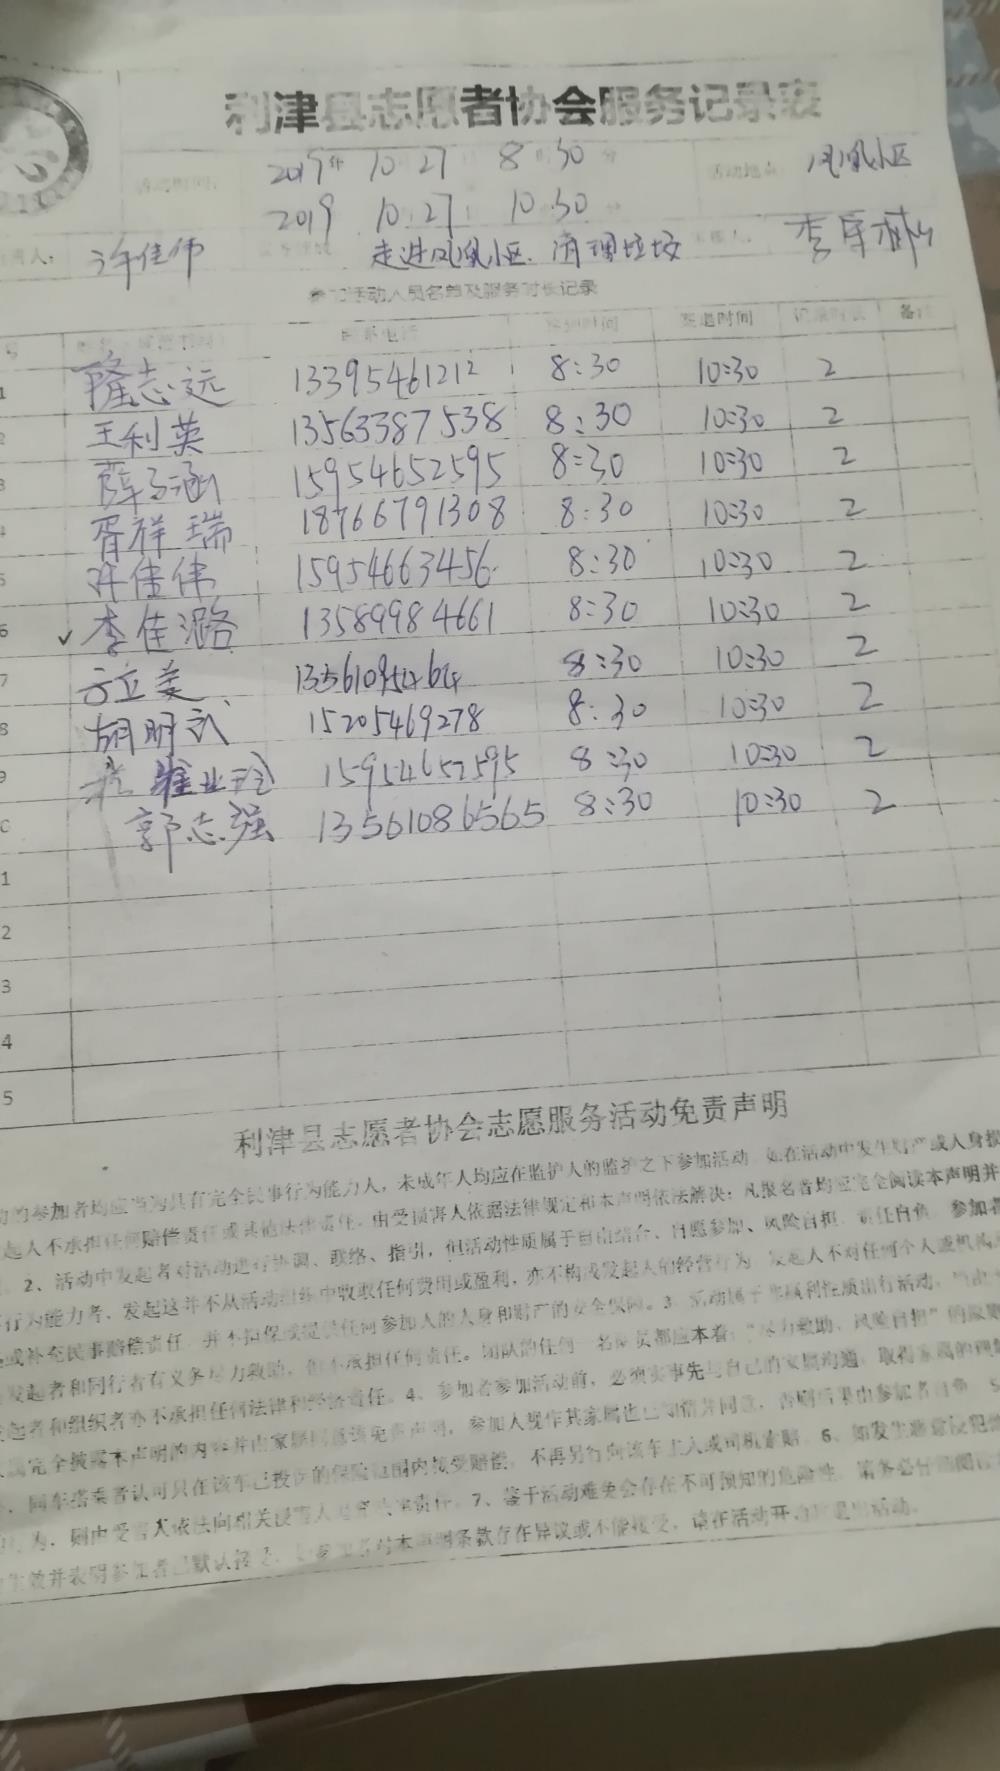 利津县志愿者协会服务记录表
活动时间： 2019年 10 27 8 30 活动地点 凤凰小区
2019 10 27 10 30
许佳伟 走进凤凰小区 清理垃圾
参加活动人员名单及服务时长记录
联系电话 签到时间 签退时间 记录时长 备注
1 隆志远 13395461212 8:30 10:30 2
2 王利英 13563387538 8:30 10:30 2
3 薛子涵 15954652595 8:30 10:30 2
4 胥祥瑞 18766791308 8:30 10:30 2
5 许佳伟 15954663456 8:30 10:30 2
6 ✓ 李佳潞 13589984661 8:30 10:30 2
7 8:30 10:30 2
8 胡明武 15205469278 8:30 10:30 2
9 15954652595 8:30 10:30 2
0 郭志强 13561086565 8:30 10:30 2
1
2
3
4
5
利津县志愿者协会志愿服务活动免责声明
的参加者均应当为具有完全民事行为能力人，未成年人均应在监护人的监护之下参加活动 如在活动中发生财产或人身损
起人不承担任何赔偿责任或其他法律责任，由受损害人依据法律规定和本声明依法解决；凡报名者均应完全阅读本声明并
2、活动中发起者对活动进行协调、联络、指引，但活动性质属于自由结合、自愿参加、风险自担 责任自负 参加者
行为能力者，发起这并不从活动组织中收取任何费用或盈利，亦不构成发起人的经营行为 发起人不对任何个人或机构
或补充民事赔偿责任 并不担保或提供任何参加人的人身和财产的安全保障。3 活动属于非赢利性质出行活动，
发起者和同行者有义务尽力救助，但不承担任何责任。团队的任何一名队员都应本着：“尽力救助、风险自担”的原则
起者和组织者亦不承担任何法律和经济责任。4、参加者参加活动前，必须实事先与自己的家属沟通，取得家属的理解
完全披露本声明的内容并由家属 该免责声明，参加人视作其家属也已知情并同意，否则后果由参加者自负 5
同车搭乘者认可只在该车已投保的保险范围内接受赔偿，不再另行向该车主人或司机索赔 6、如发生恶意侵犯
行为，则由受害人依法向相关侵害人 责任 7、鉴于活动难免会存在不可预知的危险性 请务必仔细阅读
生效并表明参加者已默认接受， 本声明条款存在异议或不能接受，请在活动开 退出活动。